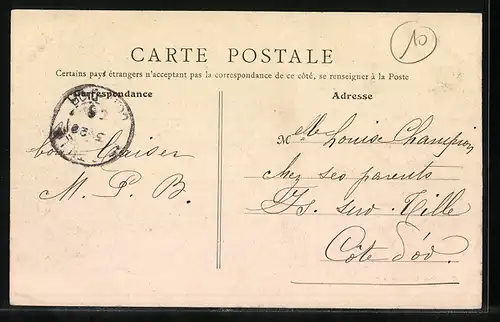 10
CARTE POSTALE
Certains pays étrangers n'acceptant pas la correspondance de ce côté, se renseigner à la Poste
Correspondance
Adresse
Mlle Louise Champion
bon baiser
chez ses parents
M. P. B.
Is. sur. Tille
Côte d'or.